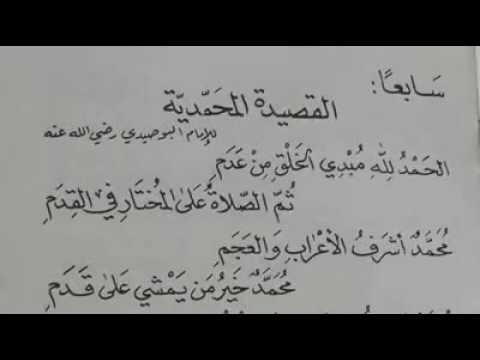 سَابعًا:
القصيدة المحَمّديّة
للإمام البوصيري رضي الله عنه
الحَمْدُ لِلّٰهِ مُبْدِي الخَلْقِ مِنْ عَدَمِ
ثُمَّ الصَّلاةُ عَلىٰ المُختَارِ في القِدَمِ
مُحَمَّدٌ أشرَفُ الأعْرَابِ وَالعَجَمِ
مُحَمَّدٌ خَيرُ مَن يَمْشي عَلىٰ قَدَمِ